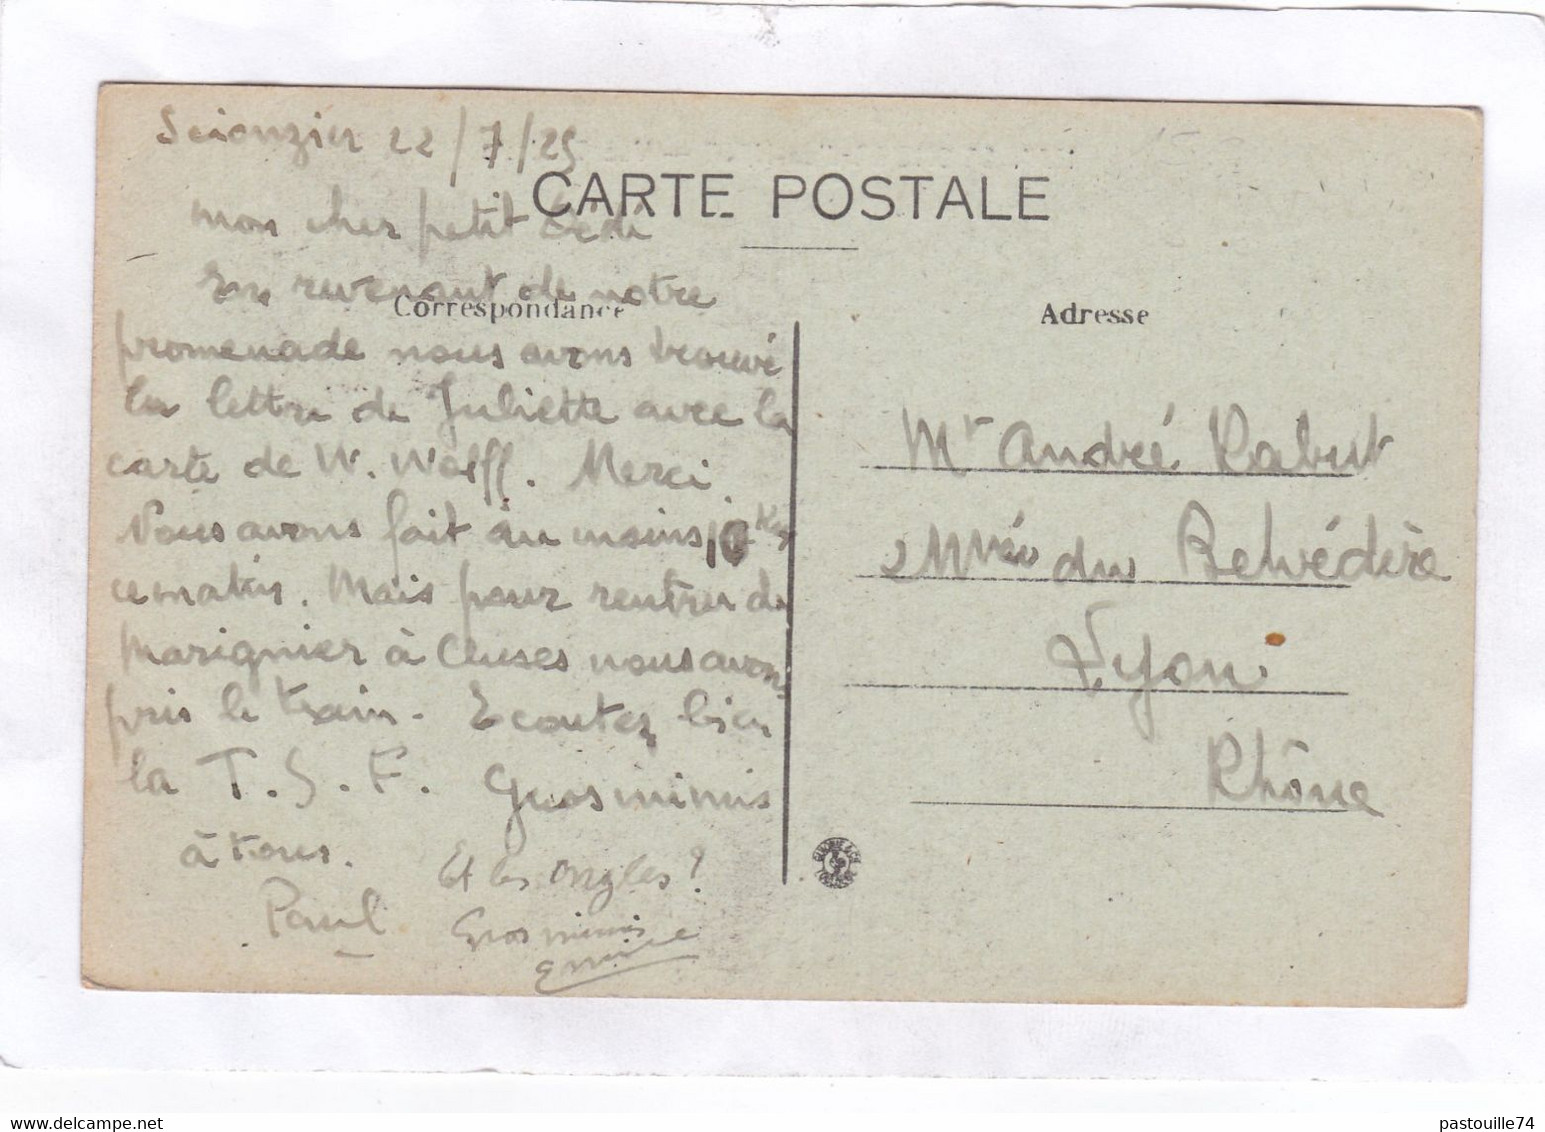 Scionzier 22/7/25
CARTE POSTALE
mon cher petit Dédé
En revenant de notre
Correspondance
promenade nous avons trouvé
la lettre de Juliette avec la
carte de W. Wolff. Merci.
Nous avons fait au moins 10 Km
ce matin. Mais pour rentrer de
Marignier à Cluses nous avons
pris le train. Ecoutez bien
la T.S.F. Gros mimis
à tous.
Paul
Et les ongles ?
Gros mimis
Adresse
Mr André Rabut
Mtée du Belvédère
Lyon
Rhône
pastouille74